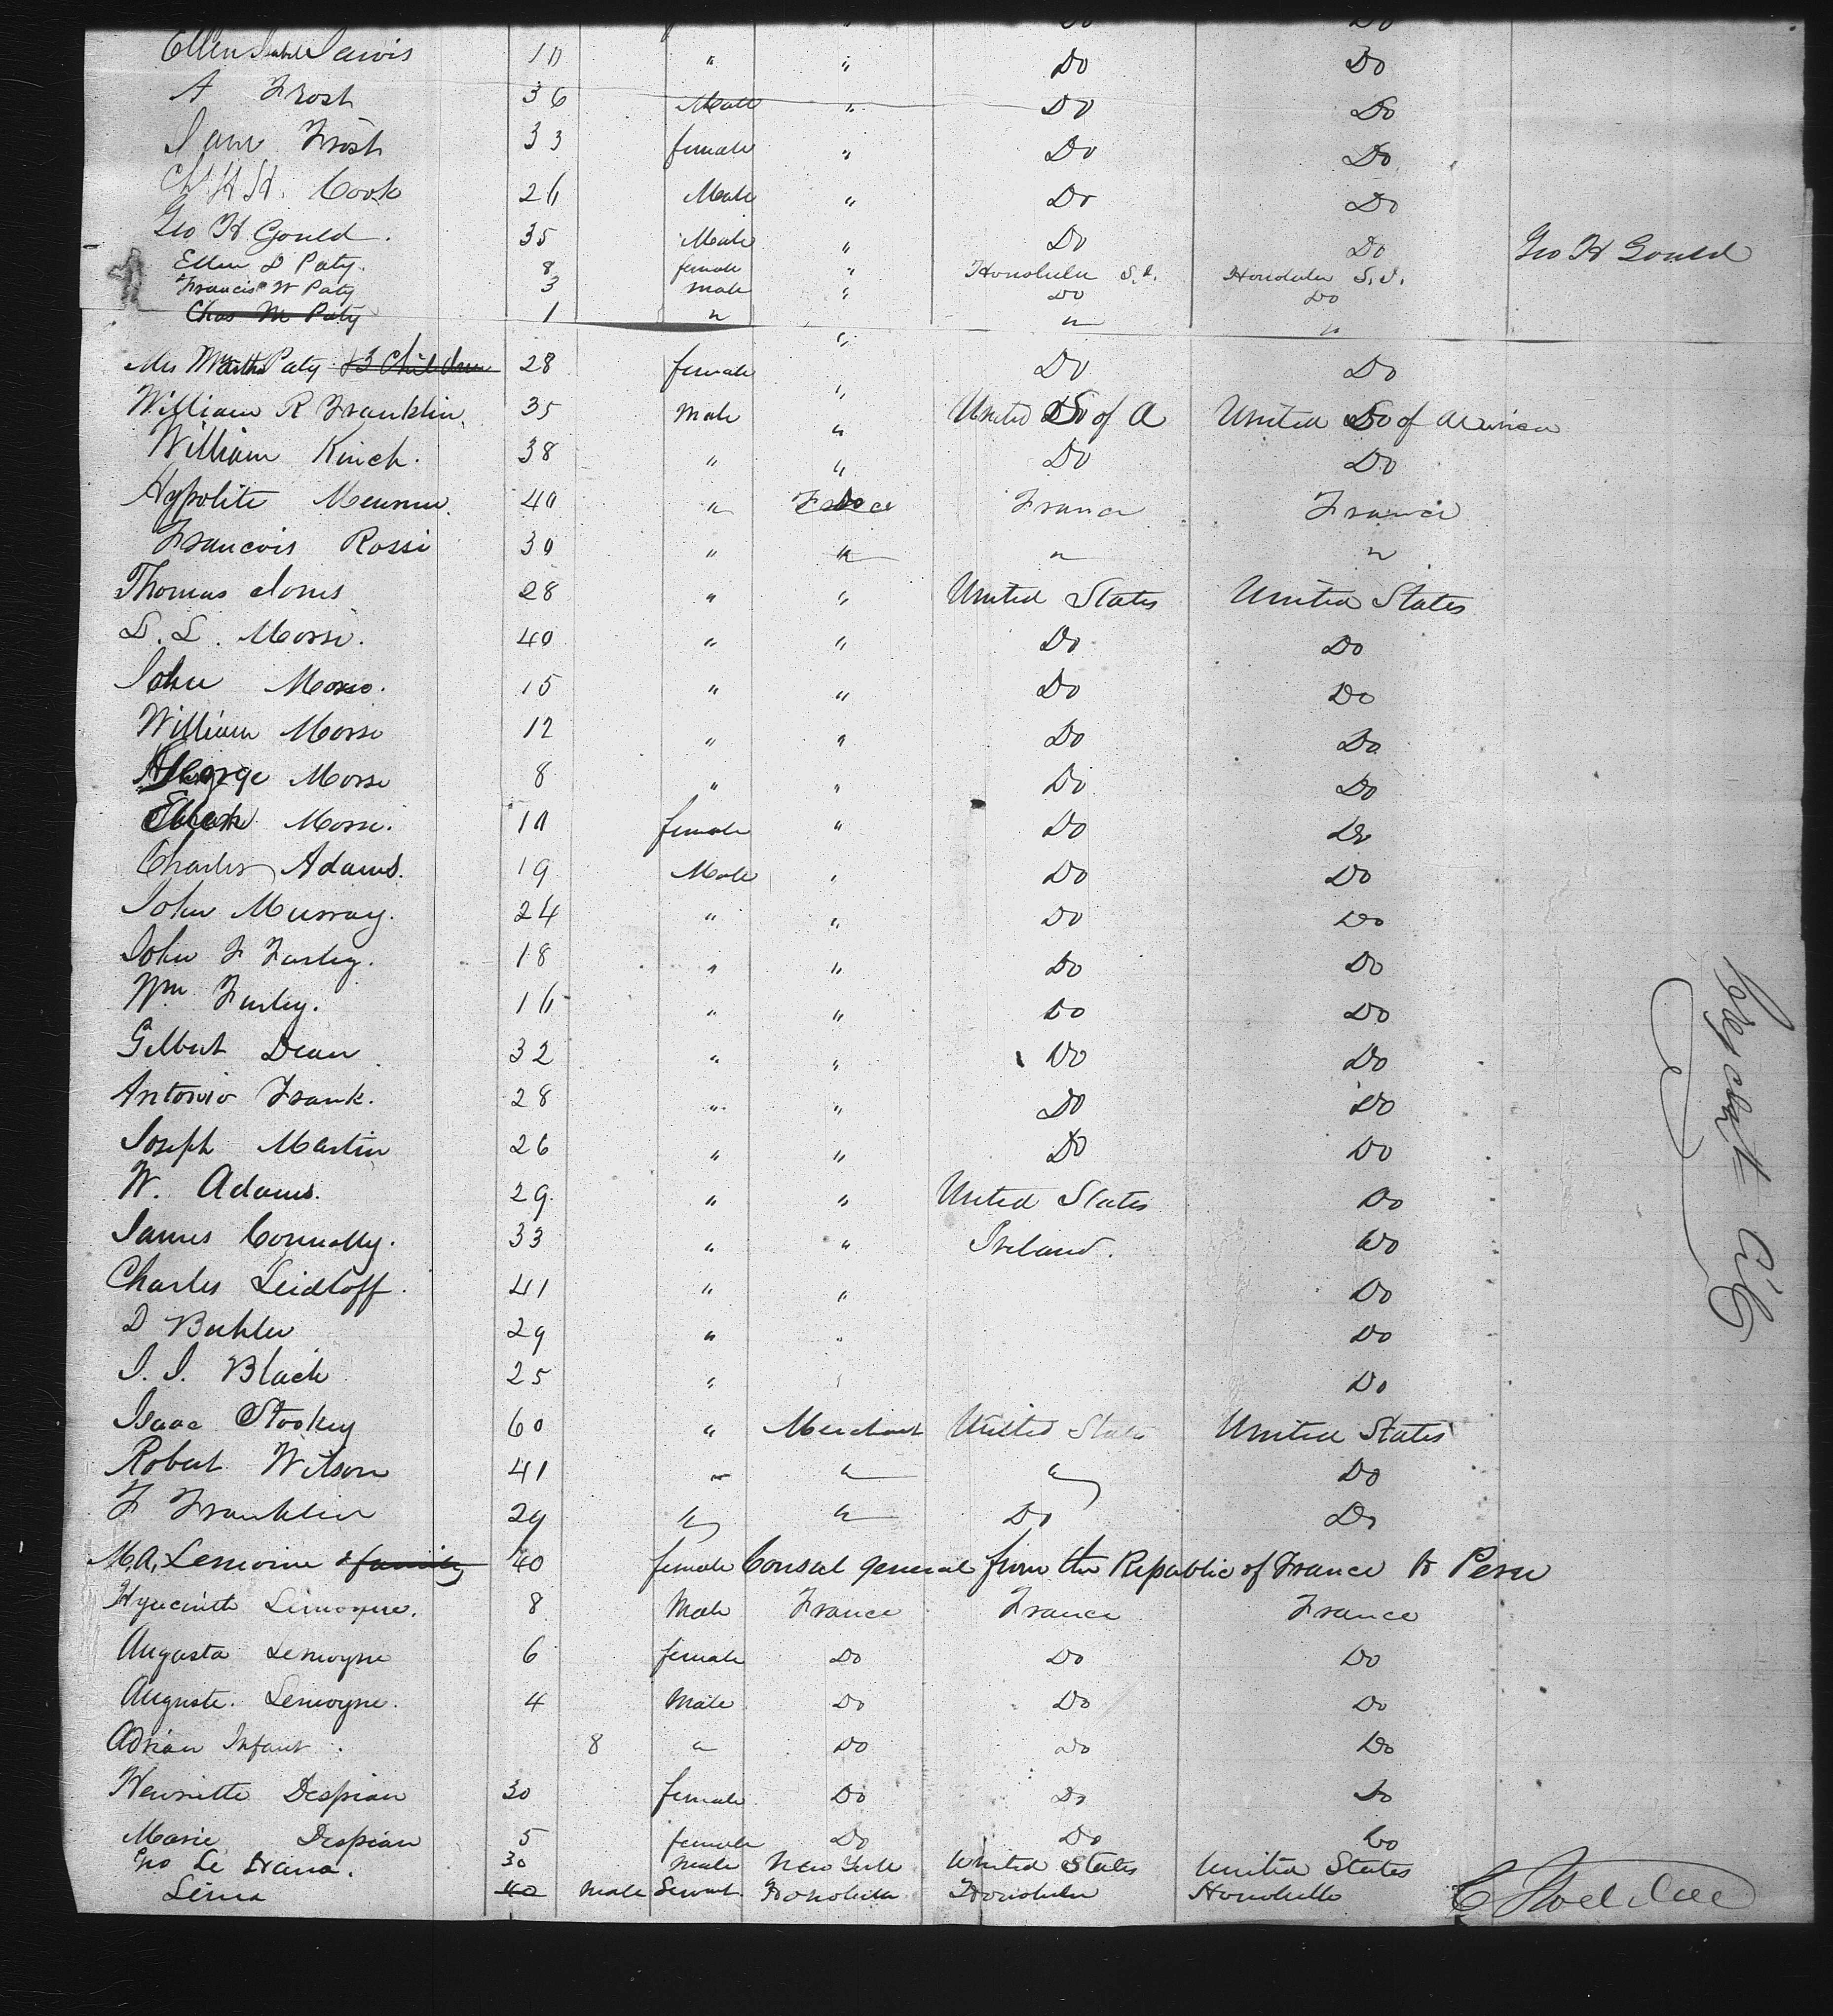 Do Do
Ellen Isabell Jarvis 10 " " Do Do
A Frost 36 Male " Do Do
Jane Frost 33 female " Do Do
H. Cook 26 Male " Do Do
Geo H Gould. 35 Male " Do Do Geo H Gould
Ellen D Paty. 8 female " Honolulu S.I. Honolulu S.I.
Francis W Paty 3 male " Do Do
Chas M Paty 1 " " " "
Mrs Martha Paty & 3 Children 28 female " Do Do
William R Franklin. 35 Male " United S of A United S of America
William Kinch. 38 " " Do Do
Hypolite 40 " France France
Francois Rossi 30 " " " "
Thomas Jones 28 " " United States United States
D. L. Morse. 40 " " Do Do
John Morse. 15 " " Do Do
William Morse 12 " " Do Do
George Morse 8 " " Do Do
Morse. 10 female " Do Do
Charles Adams. 19 Male " Do Do
John Murray. 24 " " Do Do
John F Farley. 18 " " Do Do
Wm Farley. 16 " " Do Do
Gilbert Dean 32 " " Do Do
Antonio Frank. 28 " " Do Do
Joseph Martin 26 " " Do Do
W. Adams. 29 " " United States Do
James Connolly. 33 " " Ireland. Do
Charles Leidloff. 41 " " Do
D Buhler 29 " " Do
J. J. Black 25 " Do
Isaac Stookey 60 " Merchant United States United States
Robert Wilson 41 " " " Do
F Franklin 29 " " Do Do
M.A. Lemoine & family 40 female Consul general from the Republic of France to Peru
Hyacinthe Limoyne. 8 Male France France France
Augusta Lemoyne 6 female Do Do Do
Auguste. Lemoyne. 4 Male Do Do Do
Adrian Infant. 8 " Do Do Do
Henriette Despian 30 female Do Do Do
Marie Despian 5 female Do Do Do
Geo Le 30 Male New York United States United States
Lima 40 male Servant Honolulu Honolulu Honolullo